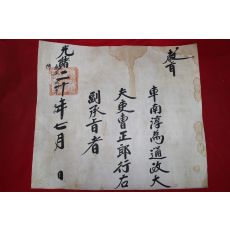 敎旨
車南淳爲通政大
夫吏曹正郎行右
副承旨者
光緖二十年七月　日